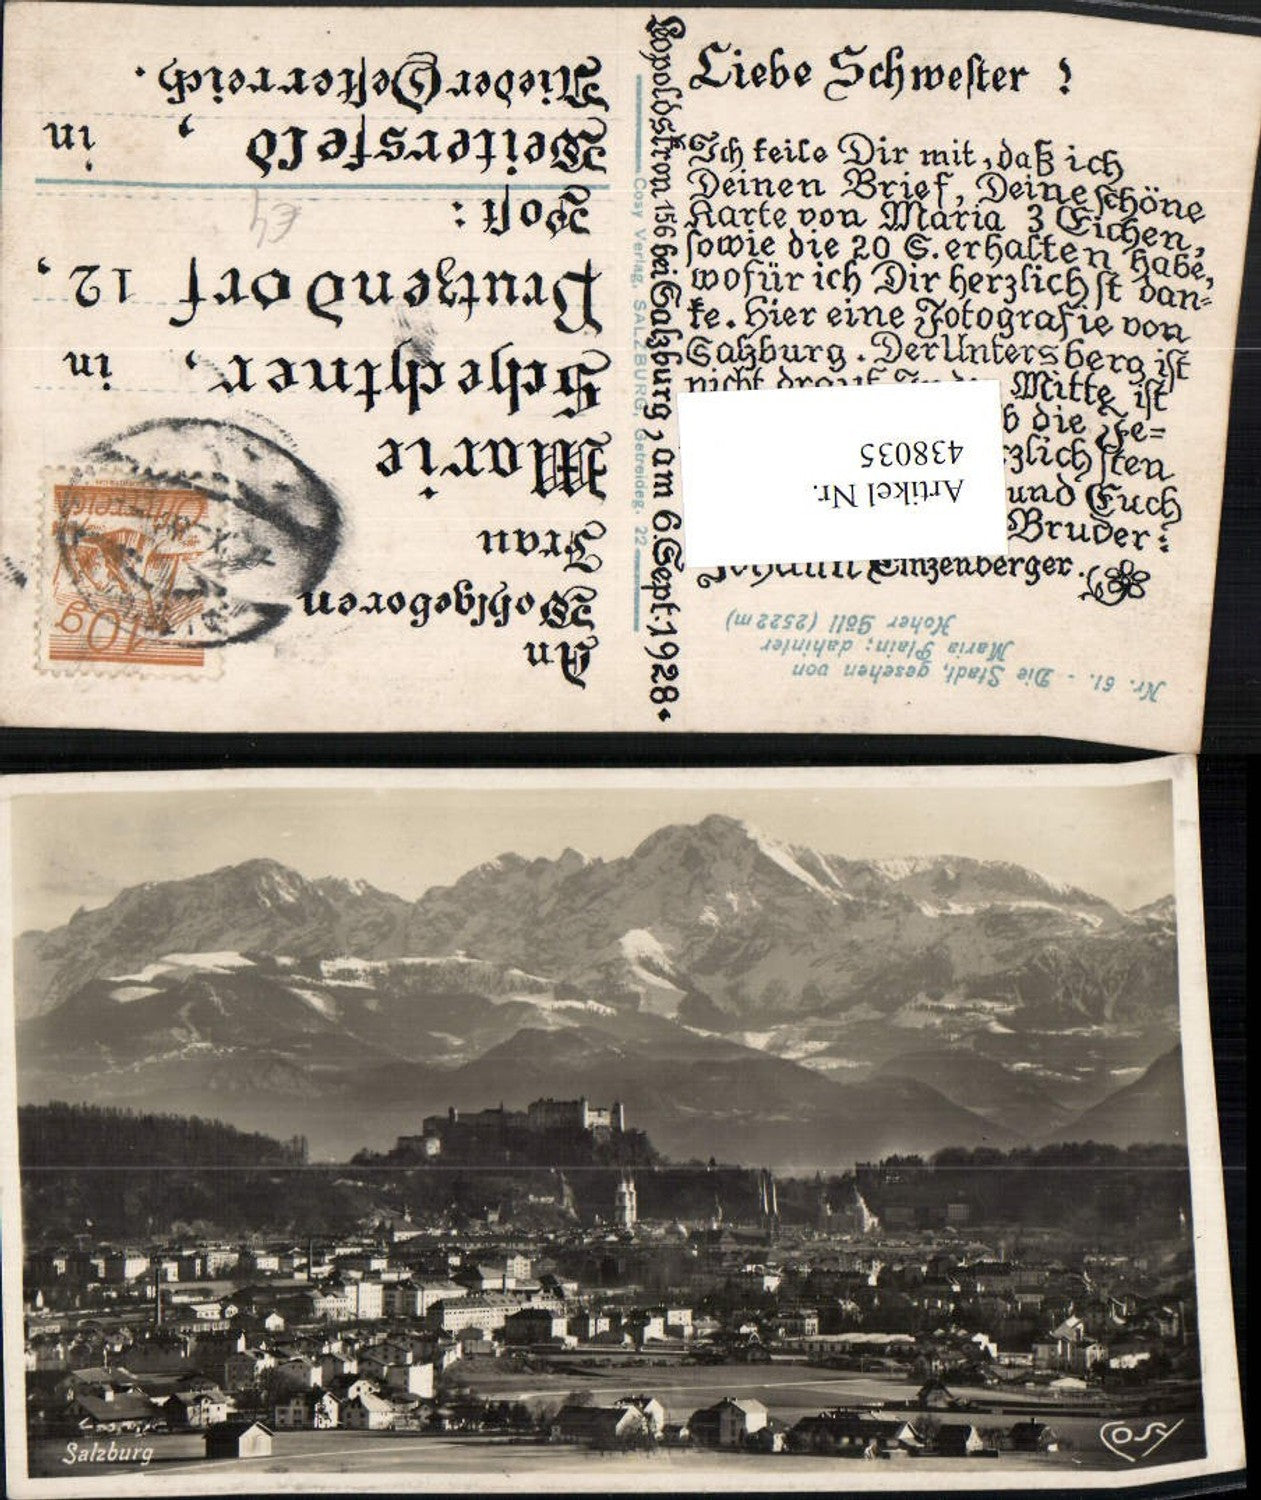 Leopoldskron 156 bei Salzburg, am 6. Sept. 1928.
Liebe Schwester !
Ich teile Dir mit, daß ich
Deinen Brief, Deine schöne
Karte von Maria 3 Eichen,
sowie die 20 S. erhalten habe,
wofür ich Dir herzlichst dan=
ke. Hier eine Fotografie von
Salzburg. Der Untersberg ist
nicht drauf. In der Mitte ist
die Fe=
zlichsten
und Euch
Bruder:
Johann Einzenberger.
Artikel Nr.
438035
Nr. 61. - Die Stadt, gesehen von
Maria Plain; dahinter
Hoher Göll (2522 m)
Cosy Verlag, SALZBURG, Getreideg. 22
An
Wohlgeboren
Frau
Marie
Schechtner, in
Prutzendorf 12,
Post:
Weitersfeld, in
Nieder Oesterreich.
€4
10 g
Österreich
Salzburg
COSY